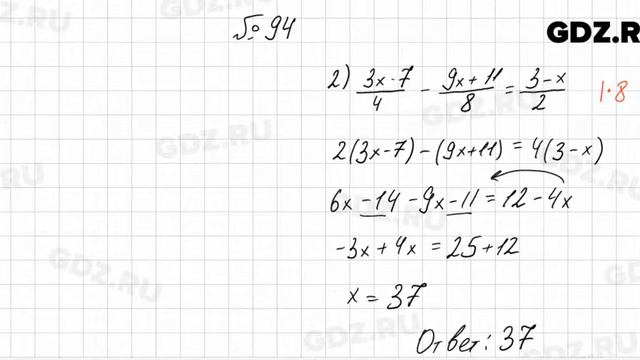 № 94
GDZ.R
2) (3x-7)/4 - (9x+11)/8 = (3-x)/2 |·8
2(3x-7)-(9x+11)=4(3-x)
6x-14-9x-11=12-4x
-3x+4x=25+12
x=37
Ответ: 37
GDZ.RU